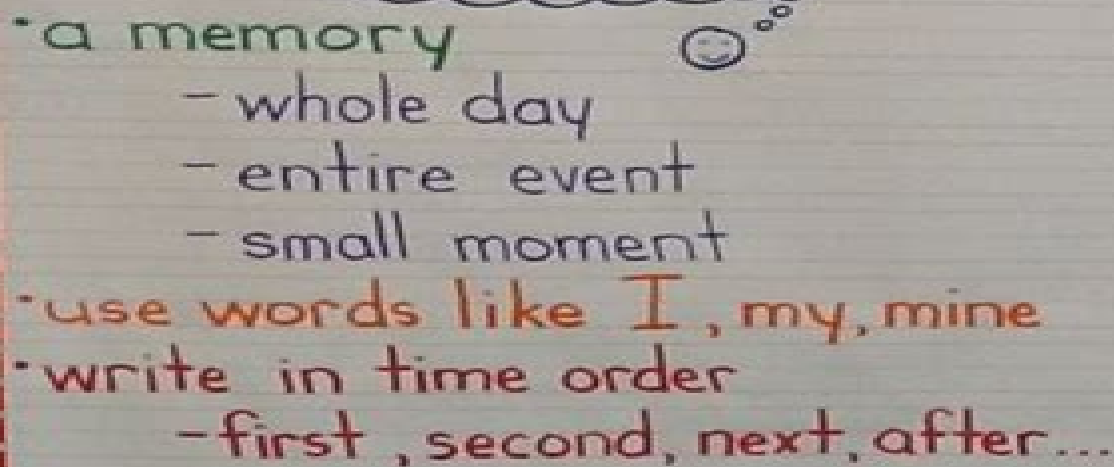 ·a memory
- whole day
- entire event
- small moment
·use words like I, my, mine
·write in time order
-first, second, next, after...